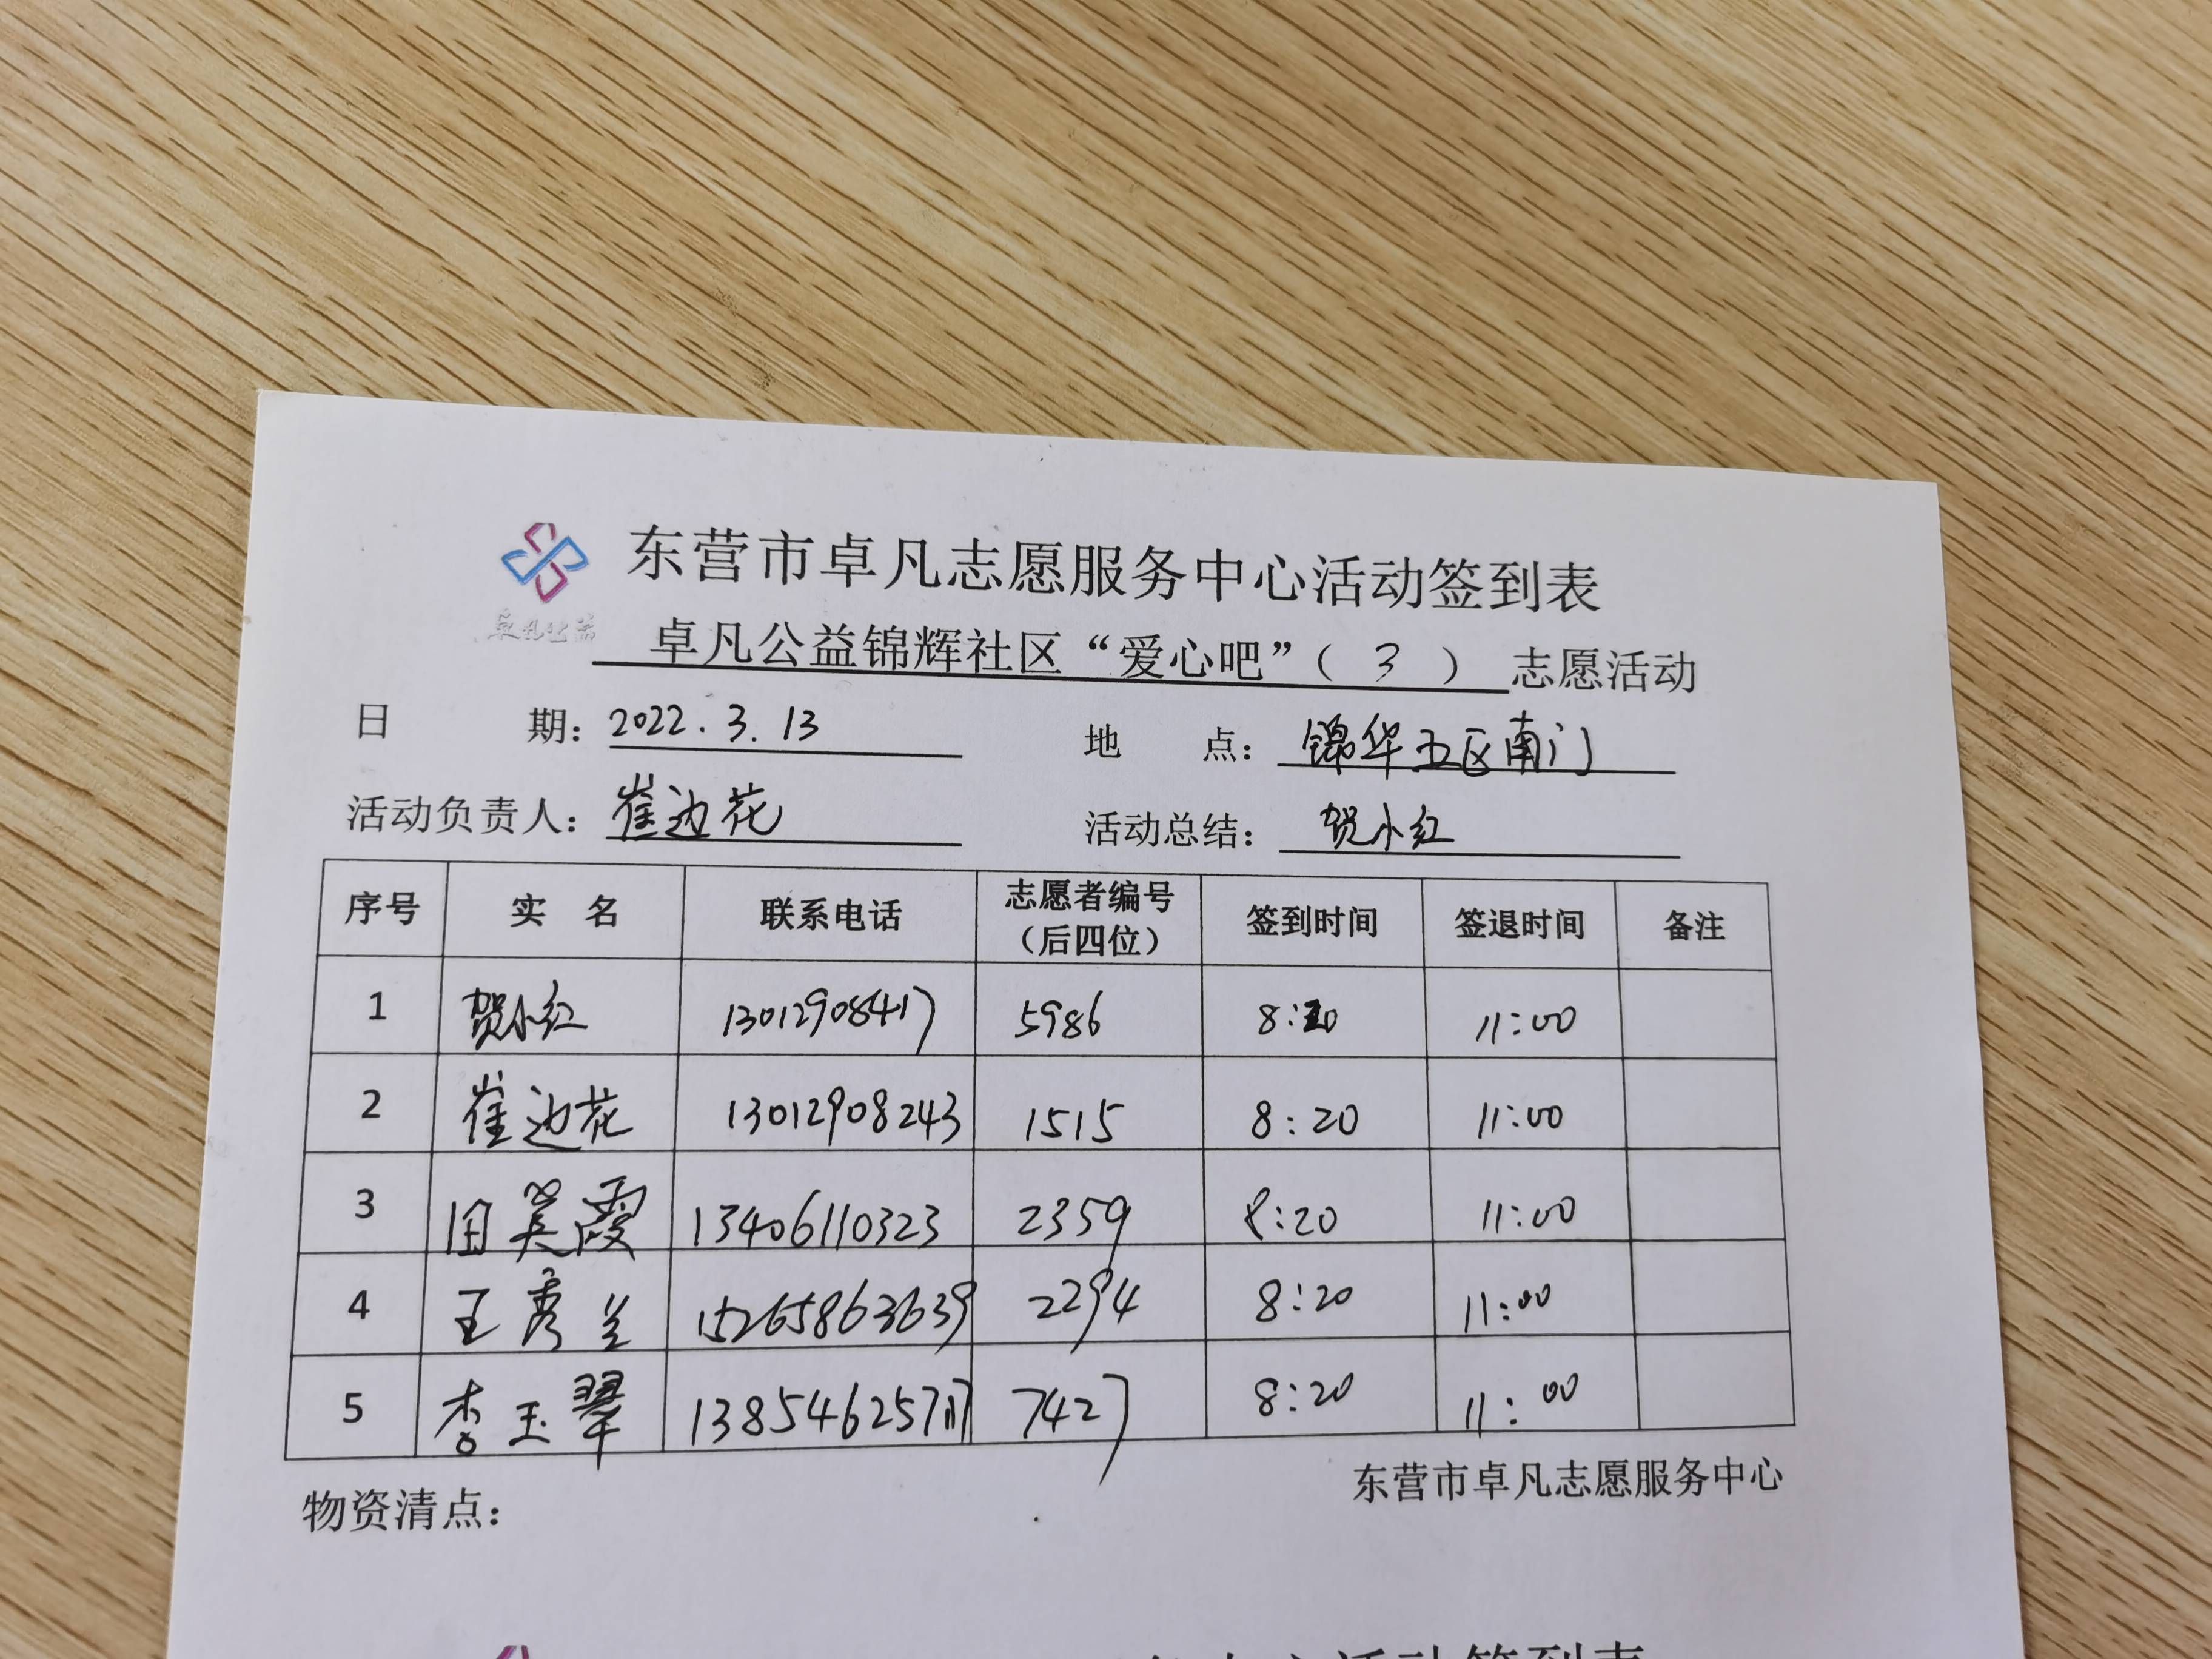 东营市卓凡志愿服务中心活动签到表
卓凡公益
卓凡公益锦辉社区“爱心吧”（ 3 ）志愿活动
日 期：2022.3.13 地 点：锦华五区南门
活动负责人：崔边花 活动总结：贺小红
序号 实 名 联系电话 志愿者编号（后四位） 签到时间 签退时间 备注
1 贺小红 13012908417 5986 8:20 11:00
2 崔边花 13012908243 1515 8:20 11:00
3 田英霞 13406110323 2359 8:20 11:00
4 王秀兰 15265863639 2294 8:20 11:00
5 李玉翠 7427 8:20 11:00
物资清点： 东营市卓凡志愿服务中心
活动签到表